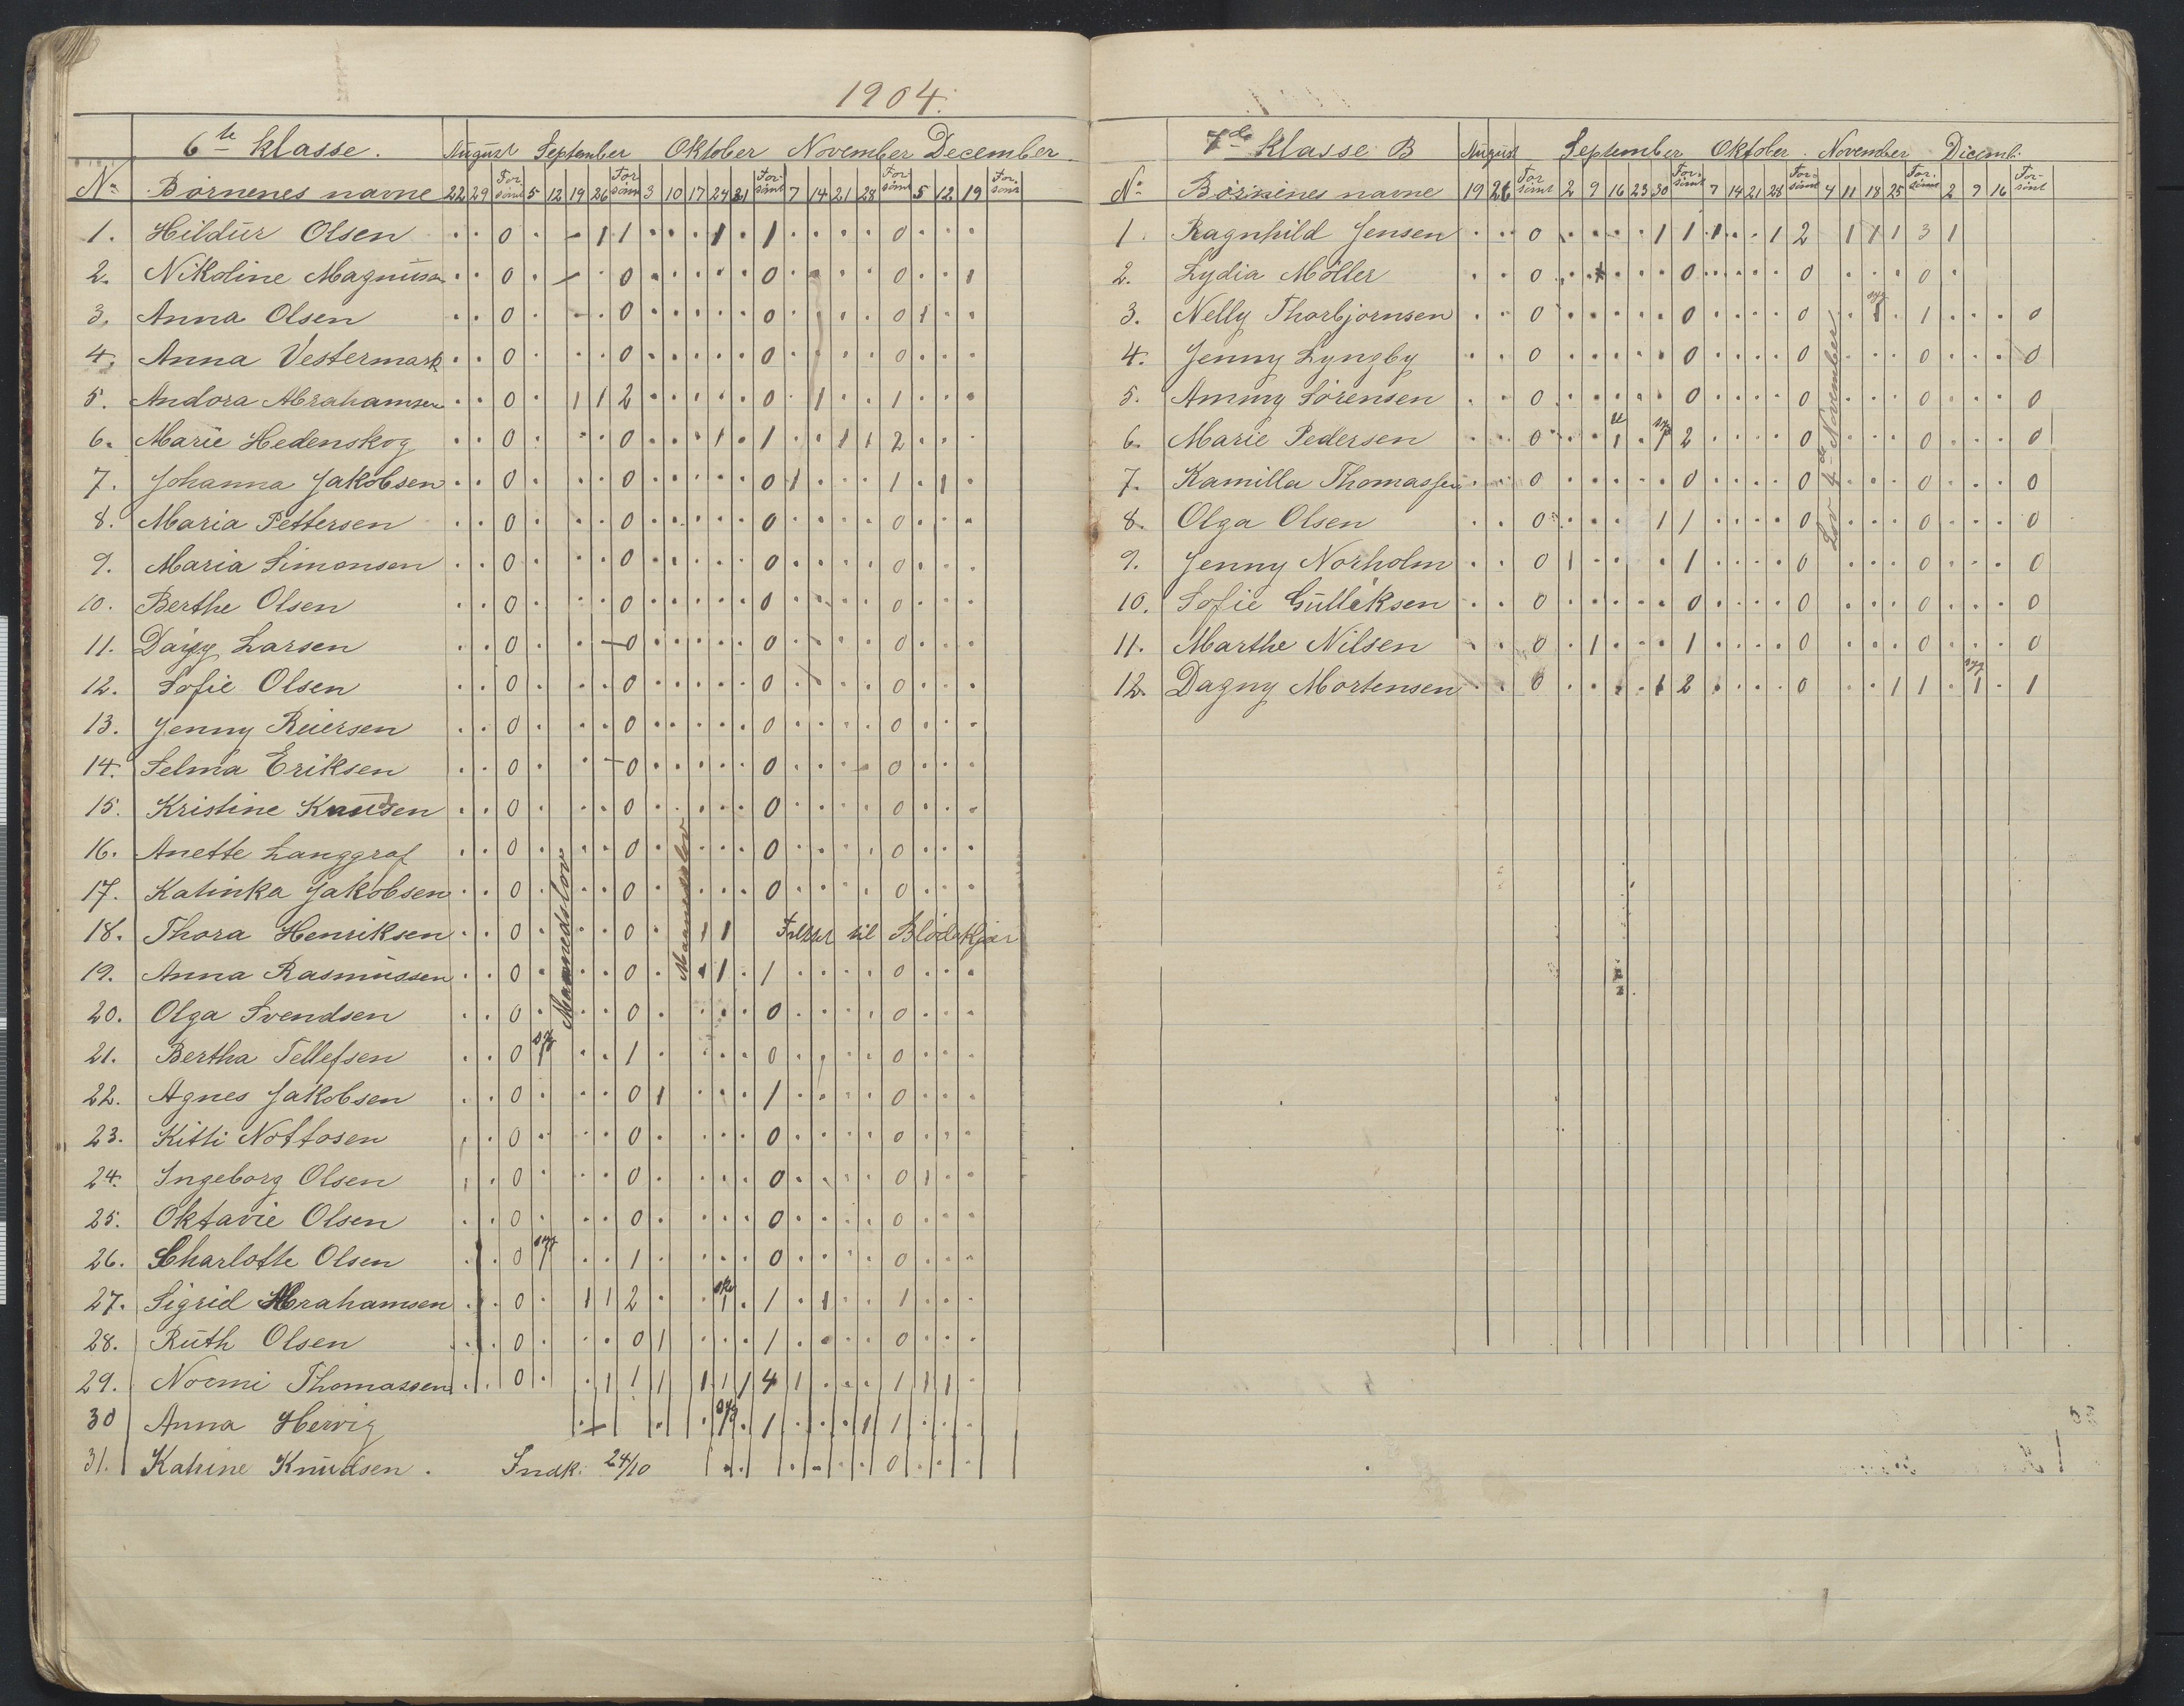 1904.
6te Klasse. August September Oktober November December
No Börnenes navne 22 29 Forsömt 5 12 19 26 Forsömt 3 10 17 24 31 Forsömt 7 14 21 28 Forsömt 5 12 19 Forsömt
1. Hildur Olsen . . 0 . - 1 1 . . . 1 . 1 . . . . 0 . . .
2. Nikoline Magnussen . . 0 . - . 0 . . . . . 0 . . . . 0 . . 1
3. Anna Olsen . . 0 . - . 0 . . . . . 0 . . . . 0 1 . .
4. Anna Vestermark . . 0 . . . 0 . . . . . 0 . . . . 0 . . .
5. Andora Abrahamsen . . 0 . 1 1 2 . . . . . 0 . 1 . . 1 . . .
6. Marie Hedenskog . . 0 . . . 0 . . . 1 . 1 . . 1 1 2 . . .
7. Johanna Jakobsen . . 0 . . . 0 . . . . . 0 1 . . . 1 . 1 .
8. Maria Pettersen . . 0 . . . 0 . . . . . 0 . . . . 0 . . .
9. Maria Simonsen . . 0 . . . 0 . . . . . 0 . . . . 0 . . .
10. Berthe Olsen . . 0 . . . 0 . . . . . 0 . . . . 0 . . .
11. Dagny Larsen . . 0 . . - 0 . . . . . 0 . . . . 0 . . .
12. Sofie Olsen . . 0 . . . 0 . . . . . 0 . . . . 0 . . .
13. Jenny Reiersen . . 0 . . . 0 . . . . . 0 . . . . 0 . . .
14. Selma Eriksen . . 0 . . - 0 . . . . . 0 . . . . 0 . . .
15. Kristine Knudsen . . 0 . . . 0 . . . . . 0 . . . . 0 . . .
16. Anette Langgraf . . 0 . . . 0 . . . . 0 . . . . 0 . . .
17. Katinka Jakobsen . . 0 . . . 0 . . . . 0 . . . . 0 . . .
Maanedslov Maanedslov
18. Thora Henriksen . . 0 . . . 0 . 1 1 Flyttet til Blödekjær
19. Anna Rasmussen . . 0 . . . 0 . . 1 . 1 . . . . 0 . . .
20. Olga Svendsen . . 0 . . . 0 . . . . 0 . . . . 0 . . .
21. Bertha Tellefsen . . 0 syg 1 . . 1 . . . . 0 . . . . 0 . . .
22. Agnes Jakobsen . . 0 . . . 0 1 . . . 1 . . . . 0 . . .
23. Kitti Nottosen . . 0 . . . 0 . . . . 0 . . . . 0 . . .
24. Ingeborg Olsen . . 0 . . . 0 . . . . 0 . . . . 0 1 . .
25. Oktavie Olsen . . 0 . . . 0 . . . . 0 . . . . 0 . . .
26. Charlotte Olsen . . 0 syg 1 . . 1 . . . . 0 . . . . 0 . . .
27. Sigrid Abrahamsen . . 0 . 1 1 2 . . 1 . 1 . 1 . . 1 . . .
28. Ruth Olsen . . 0 . . . 0 1 . . . 1 . . . . 0 . . .
29. Noemi Thomassen . . 0 . . 1 1 1 1 1 1 4 1 . . . 1 1 1 .
30 Anna Hervig . - . . syg 1 . 1 . . . 1 1 . . .
31. Katrine Knudsen. Indk. 24/10 . . . . . . 0 . . .
7de Klasse B August September Oktober November Decemb.
No Börnenes navne 19 26 Forsömt 2 9 16 23 30 Forsömt 7 14 21 28 Forsömt 4 11 18 25 Forsömt 2 9 16 Forsömt
1. Ragnhild Jensen . . 0 . . . . 1 1 1 . . 1 2 1 1 1 3 1
2. Lydia Möller . . 0 . . . . . 0 . . . . 0 . . . 0 .
3. Nelly Thorbjörnsen . . 0 . . . . . 0 . . . . 0 . syg 1 . 1 . . . 0
4. Jenny Lyngby . . 0 . . . . . 0 . . . . 0 . . . 0 . . . 0
5. Ammy Sörensen . . 0 . . . . . 0 . . . . 0 . . . 0 . . . 0
6. Marie Pedersen . . 0 . . 1 . syg 1 2 . . . . 0 . . . 0 . . . 0
7. Kamilla Thomassen . . 0 . . . . . 0 . . . . 0 . . . 0 . . . 0
8. Olga Olsen . . 0 . . . . 1 1 . . . . 0 . . . 0 . . . 0
Lov 4de November
9. Jenny Norholm . . 0 1 . . . . 1 . . . . 0 . . . 0 . . . 0
10. Sofie Gulliksen . . 0 . . . . . 0 . . . . 0 . . . 0 . . . 0
11. Marthe Nilsen . . 0 . 1 . . . 1 . . . . 0 . . . 0 . . . 0
12. Dagny Mortensen . . 0 . . . . 1 2 . . . . 0 . . 1 1 . syg 1 . 1